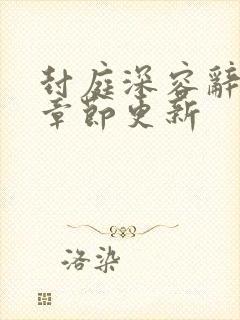 封庭深容辭
章節更新
洛染